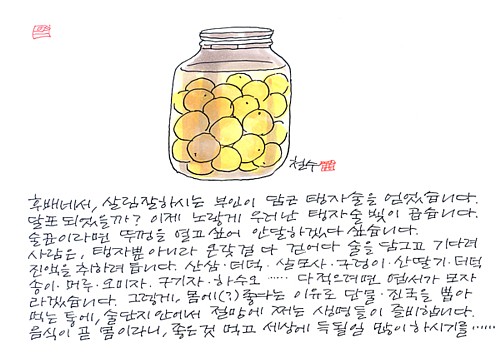 철수
후배네서, 살림잘하시는 부인이 담근 탱자술을 얻었습니다.
달포 되었을까? 이제 노랗게 우러난 탱자술 빛이 곱습니다.
술꾼이라면 뚜껑을 열고 싶어 안달하겠다 싶습니다.
사람은, 탱자뿐 아니라 온갖 것 다 걷어다 술을 담그고 기다려
진액을 취하려 듭니다. 산삼·더덕·살모사·구렁이·산딸기·더덕
송이·머루·오미자·구기자·하수오…… 다 적으려면 엽서가 모자
라겠습니다. 그렇게, 몸에(?)좋다는 이유로 단물·진국을 뽑아
먹는 통에, 술단지 안에서 절망에 찌는 생명들이 즐비합니다.
음식이 곧 몸이라니, 좋은것 먹고 세상에 득될일 많이 하시기를……